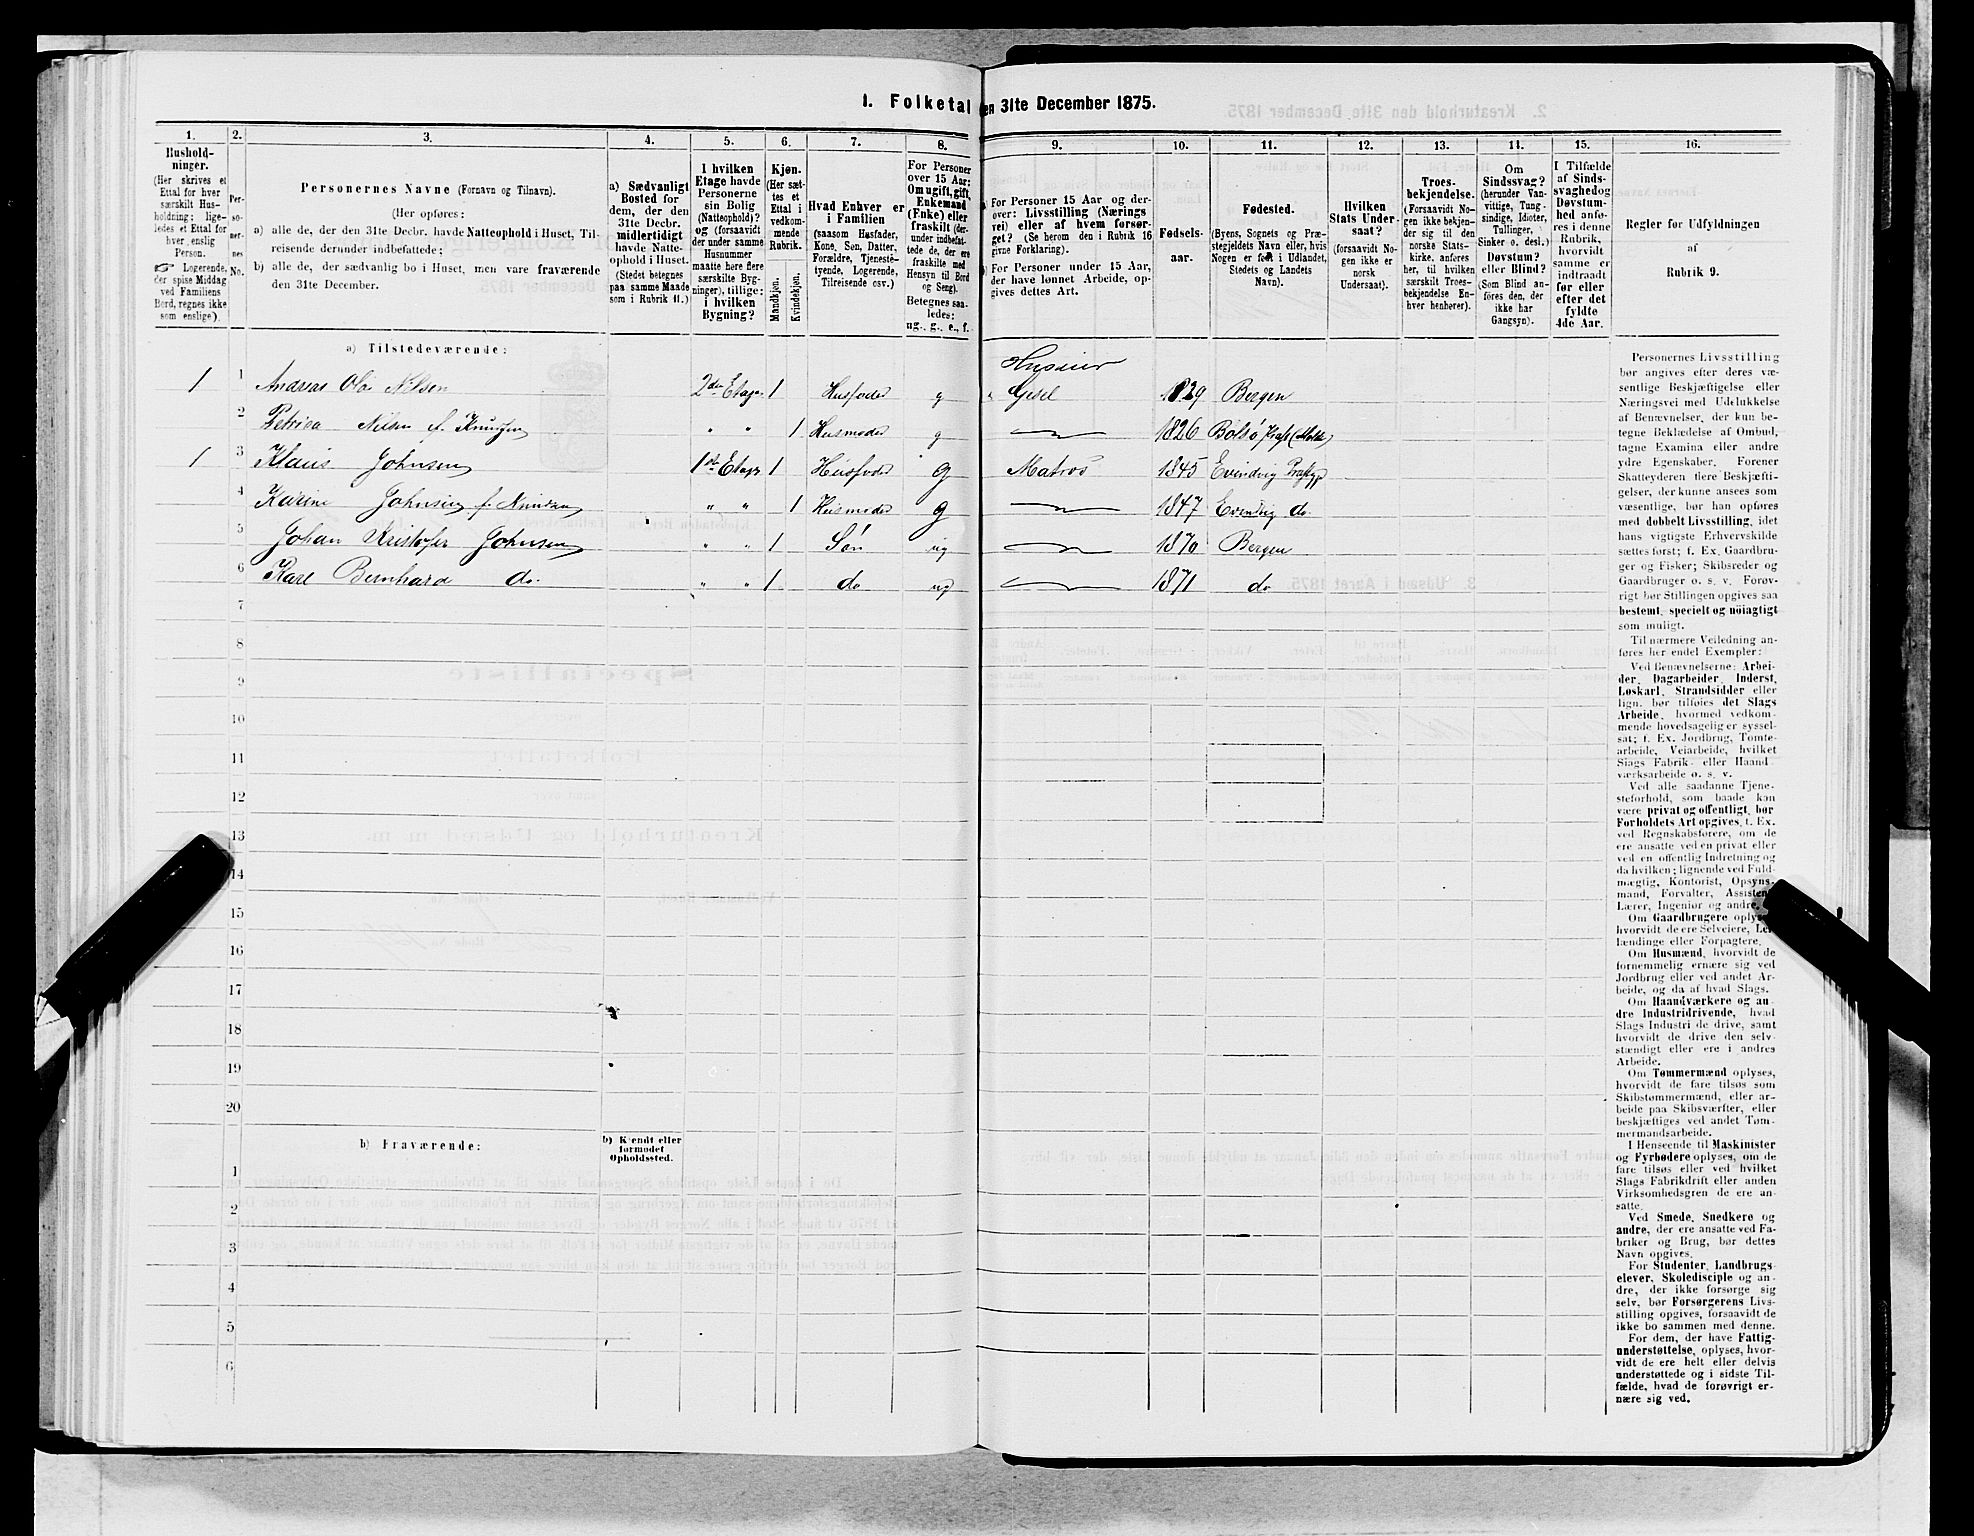 1. Folketal den 31te December 1875.
1. 2. 3. 4. 5. 6. 7. 8. 9. 10. 11. 12. 13. 14. 15. 16.
Husholdninger.
(Her skrives et
Ettal for hver
særskilt Husholdning;
ligeledes et Ettal for
hver enslig
Person.
☞ Logerende,
der spise Middag
ved Familiens
Bord, regnes ikke
som enslige).
Personernes No.
Personernes Navne (Fornavn og Tilnavn).
(Her opføres:
a) alle de, der den 31te Decbr. havde Natteophold i Huset, Tilreisende derunder indbefattede;
b) alle de, der sædvanlig bo i Huset, men vare fraværende
den 31te December.
a) Sædvanligt
Bosted for
dem, der den
31te Decbr.
midlertidigt
havde Natteophold i Huset.
(Stedet betegnes
paa samme Maade
som i Rubrik 11.)
I hvilken
Etage havde
Personerne
sin Bolig
(Natteophold)?
og (forsaavidt
der under samme
Husnummer
maatte høre flere
særskilte Bygninger), tillige:
i hvilken
Bygning?
Kjøn.
(Her sættes et
Ettal i
vedkommende
Rubrik.
Mandkjøn.
Kvindekjøn.
Hvad Enhver er
i Familien
(saasom Husfader,
Kone, Søn, Datter,
Forældre, Tjenestetyende, Logerende,
Tilreisende osv.)
For Personer
over 15 Aar:
Om ugift, gift,
Enkemand
(Enke) eller
fraskilt (derunder indbefattede de, der ere
fraskilte med
Hensyn til Bord
og Seng).
Betegnes saaledes:
ug., g., e., f.
a) For Personer 15 Aar og derover: Livsstilling (Næringsvei) eller af hvem forsørget? (Se herom den i Rubrik 16
givne Forklaring).
b) For Personer under 15 Aar,
der have lønnet Arbeide, opgives dettes Art.
Fødselsaar.
Fødested.
(Byens, Sognets og Præstegjeldets Navn eller, hvis
Nogen er født i Udlandet,
Stedets og Landets
Navn).
Hvilken
Stats Undersaat?
(forsaavidt Nogen ikke er
norsk
Undersaat).
Troesbekjendelse.
(Forsaavidt Nogen ikke bekjender sig til den
norske Statskirke, anføres
her, til hvilken
særskilt Troesbekjendelse Enhver henhører).
Om
Sindssvag?
(herunder Vanvittige, Tungsindige, Idioter,
Sinker o. desl.)
Døvstum?
eller Blind?
(Som Blind anføres den, der
ikke har
Gangsyn).
I Tilfælde
af Sindssvaghed og
Døvstumhed anføres i denne
Rubrik,
hvorvidt
samme er
indtraadt
før eller
efter det
fyldte
4de Aar.
Regler før Udfyldningen
af
Rubrik 9.
a) Tilstedeværende:
1 1 Andreas Olai Nilsen 2den Etage 1 Husfader g Gesel 1829 Bergen
2 Petrica Nilsen f. " " 1 Husmoder g 1826 Bolsø Præst
1 3 Klaus Johnsen 1ste Etage 1 Husfader g Matros 1845 Evindvig Præstgj
4 Karine Johnsen f. " " 1 Husmoder g 1847 Evindvig do.
5 Johan Kristofer Johnsen " " 1 Søn ug 1870 Bergen
6 Karl Bernhard do. " " 1 do ug 1871 do
7
8
9
10
11
12
13
14
15
16
17
18
19
20
b) Fraværende: b) Kjendt eller
formodet
Opholdssted.
1
2
3
4
5
6
Personernes Livsstilling
bør angives efter deres væsentlige Beskjæftigelse eller
Næringsvei med Udelukkelse
af Benævnelser, der kun betegne Beklædelse af Ombud,
tagne Examina eller andre
ydre Egenskaber. Forener
Skatteyderen flere Beskjæftigelser, der kunne ansees som
væsentlige, bør han opføres
med dobbelt Livsstilling, idet
hans vigtigste Erhvervskilde
sættes først; f. Ex. Gaardbruger og Fisker; Skibsreder og
Gaardbruger o. s. v. Forøvrigt bør Stillingen opgives saa
bestemt, specielt og nöiagtigt
som muligt.
Til nærmere Veiledning anføres her endel Exempler:
Ved Benævnelserne: Arbeider, Dagarbeider, Inderst,
Løskarl, Strandsidder eller
lign. bør tilføies det Slags
Arbeide, hvormed vedkommende hovedsagelig er sysselsat; f. Ex. Jordbrug, Tomtearbeide, Veiarbeide, hvilket
Slags Fabrik- eller Haandværksarbeide o. s. v.
Ved alle saadanne Tjenesteforhold, som baade kan
være privat og offentligt, bør
Forholdets Art opgives, f. Ex.
ved Regnskabsførere, om de
ere ansatte ved en privat eller
ved en offentlig Indretning og
da hvilken; lignende ved Fuldmægtig, Kontorist, Opsynsmand, Forvalter, Assistent,
Lærer, Ingeniør og andre.
Om Gaardbrugere oplyses,
hvorvidt de ere Selveiere, Leilændinge eller Forpagtere.
Om Husmænd, hvorvidt de
fornemmelig ernære sig ved
Jordbrug eller ved andet Arbeide, og da af hvad Slags.
Om Haandværkere og andre Industridrivende, hvad
Slags Industri de drive, samt
hvorvidt de drive den selvstændigt eller ere i andres
Arbeide.
Om Tømmermænd oplyses,
hvorvidt de fare tilsøs som
Skibstømmermænd, eller arbeide paa Skibsværfter, eller
beskjæftiges ved andet Tømmermandsarbeide.
I Henseende til Maskinister
og Fyrbødere oplyses, om de
fare tilsøs eller ved hvilket
Slags Fabrikdrift eller anden
Virksomhedsgren de ere ansatte.
Ved Smede, Snedkere og
andre, der ere ansatte ved Fabriker og Brug, bør dettes
Navn opgives.
For Studenter, Landbrugselever, Skoledisciple og andre, der ikke forsørge sig
selv, bør Forsørgerens Livsstilling opgives, forsaavidt de
ikke bo sammen med denne.
For dem, der have Fattigunderstøttelse, oplyses, hvorvidt de ere helt eller delvis
understøttede og i sidste Tilfælde, hvad de forøvrigt ernære sig ved.